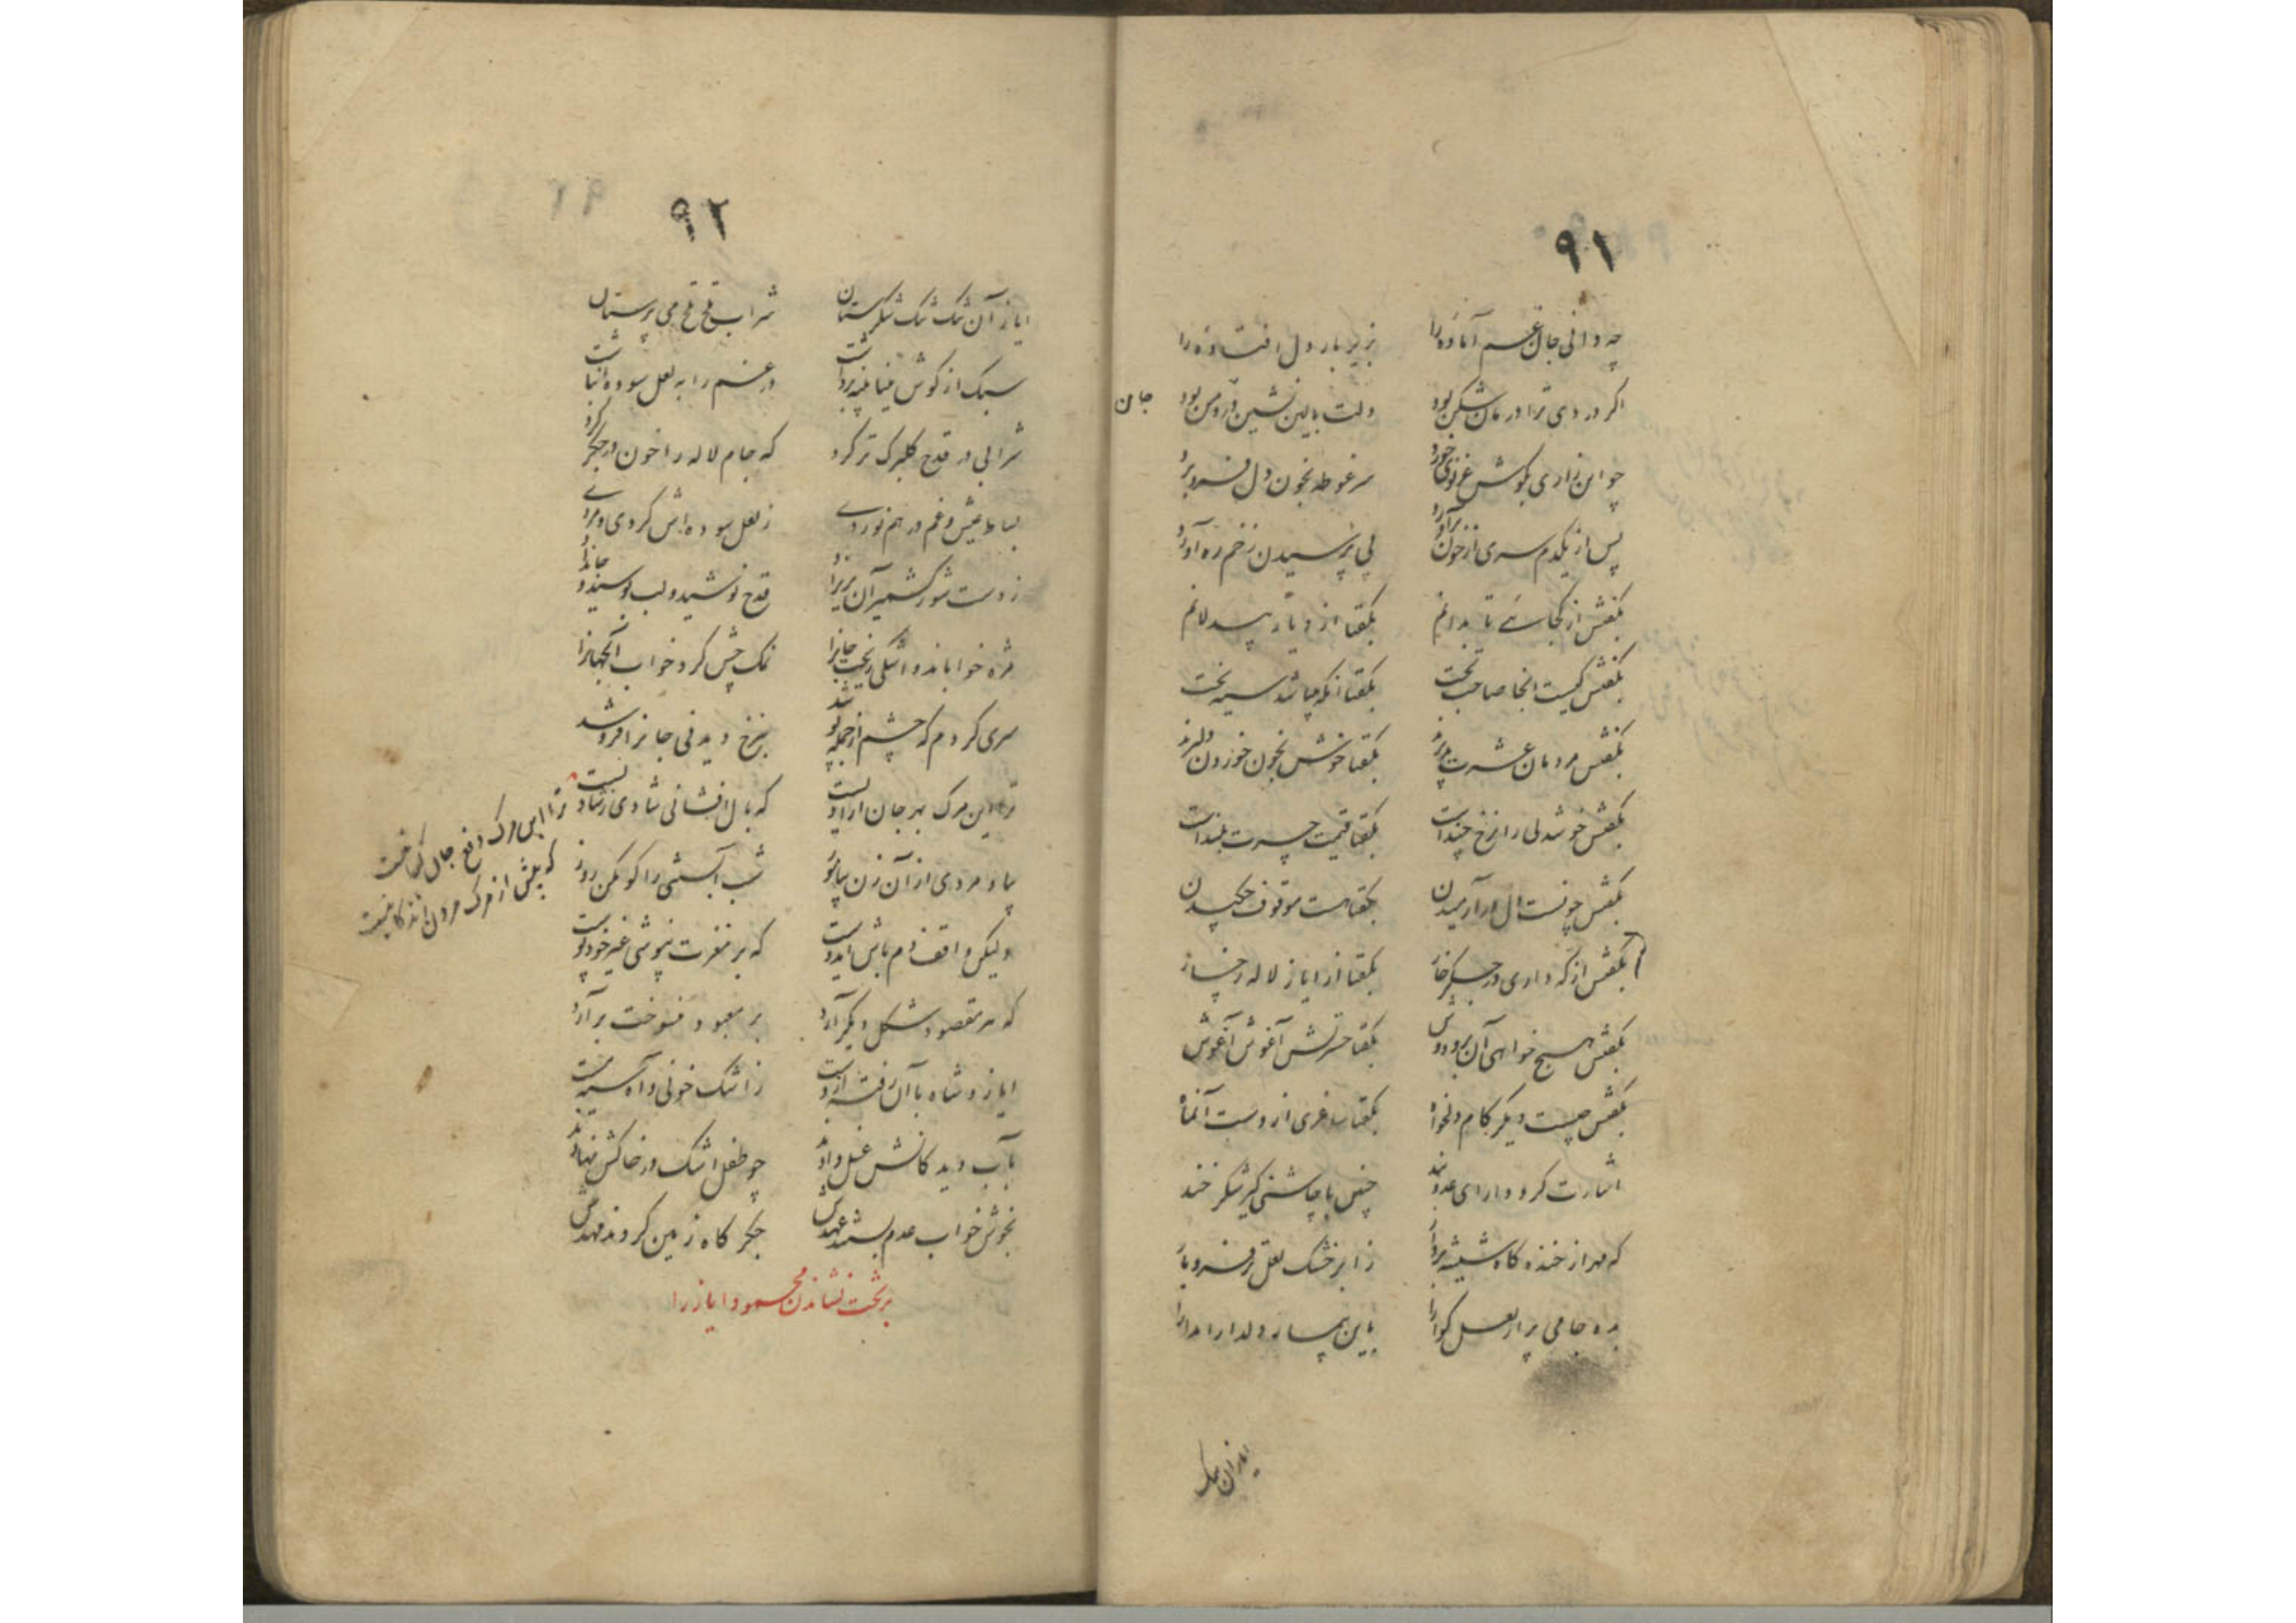 ۹۱
چه دانی جان غم آماده را بزیر بار دل افتاده را
اگر دردی ترا درمان شکن بود دلت بالین نشین درد من بود
جان
چو این زاری بگوش غزنوی خورد سر غوطه بخون دل فرو برد
پس از یکدم سری از خون برآورد پی پرسیدن زخم ره آورد
بگفتش از کجائی تا بدانم بگفتا از دیار بیدلانم
بگفتش کیست آنجا صاحب تخت بگفتا آنکه باشد سیه بخت
بگفتش مردمان عشرت پرند بگفتا خوش بخون خوردن دلیرند
بگفتش خوشدلی را نرخ چند است بگفتا قیمت حسرت بلند است
بگفتش چونست دل در آرمیدن بگفتا هست موقوف چکیدن
بگفتش از که داری در جگر خار بگفتا از ایاز لاله رخسار
بگفتش هیچ خواهی آن برودوش بگفتا حسرتش آغوش آغوش
بگفتش چیست دیگر کام دلخواه بگفتا ساغری از دست آنماه
اشارت کرد دارای عدو بند چنین با چاشنی گیر شکر خند
که مهر از خنده گاه شیشه بردار ز ابر خشک لعل تر فرو بار
بده جامی پر از لعل گوارا باین پیمانه دلدار را مدارا
ایاز آن نمک
۹۲
ایاز آن نمک نمک شکرستان شراب قدح قدح می پرستان
سبک از گوش مینا پنبه برداشت در غم را به لعل سوده انباشت
شرابی در قدح گلبرگ تر کرد که جام لاله را خون در جگر کرد
بساط عیش و غم در هم نوردی ز لعل سوده اش کردی و مردی
ز دست شور کشمیر آن پریزاد قدح نوشید و لب بوسید و جانداد
مژه خواباند و اشکی ریخت جانرا نمک چش کرد خواب آنجهانرا
سری کردم که چشم از جمله پوشد بنرخ دیدنی جانرا فروشد
ترا این مرگ بهر جان از او نیست که بال افشانی شادی ز شادیست
ترا این مرگ دفع جان گداخت
که پیش از مرگ مردن
بیا و مردی از آن زن بیاموز شب آبستنی را کو مکن روز
ولیکن واقف دم باش ایدوست که بر مغزت نپوشی غیر خود پوست
که سر مقصود شکل دیگر آرد بر معبود فسوخت برآرد
ایاز و شاه با آن رفته از دست ز اشک خونی و آه سیه مست
بآب دیدگانش غسل دادند چو طفل اشک در خاکش نهادند
بخوش خواب عدم بستند عهدش جگر گاه زمین کردند مهدش
بر تخت نشاندن محمود ایاز را